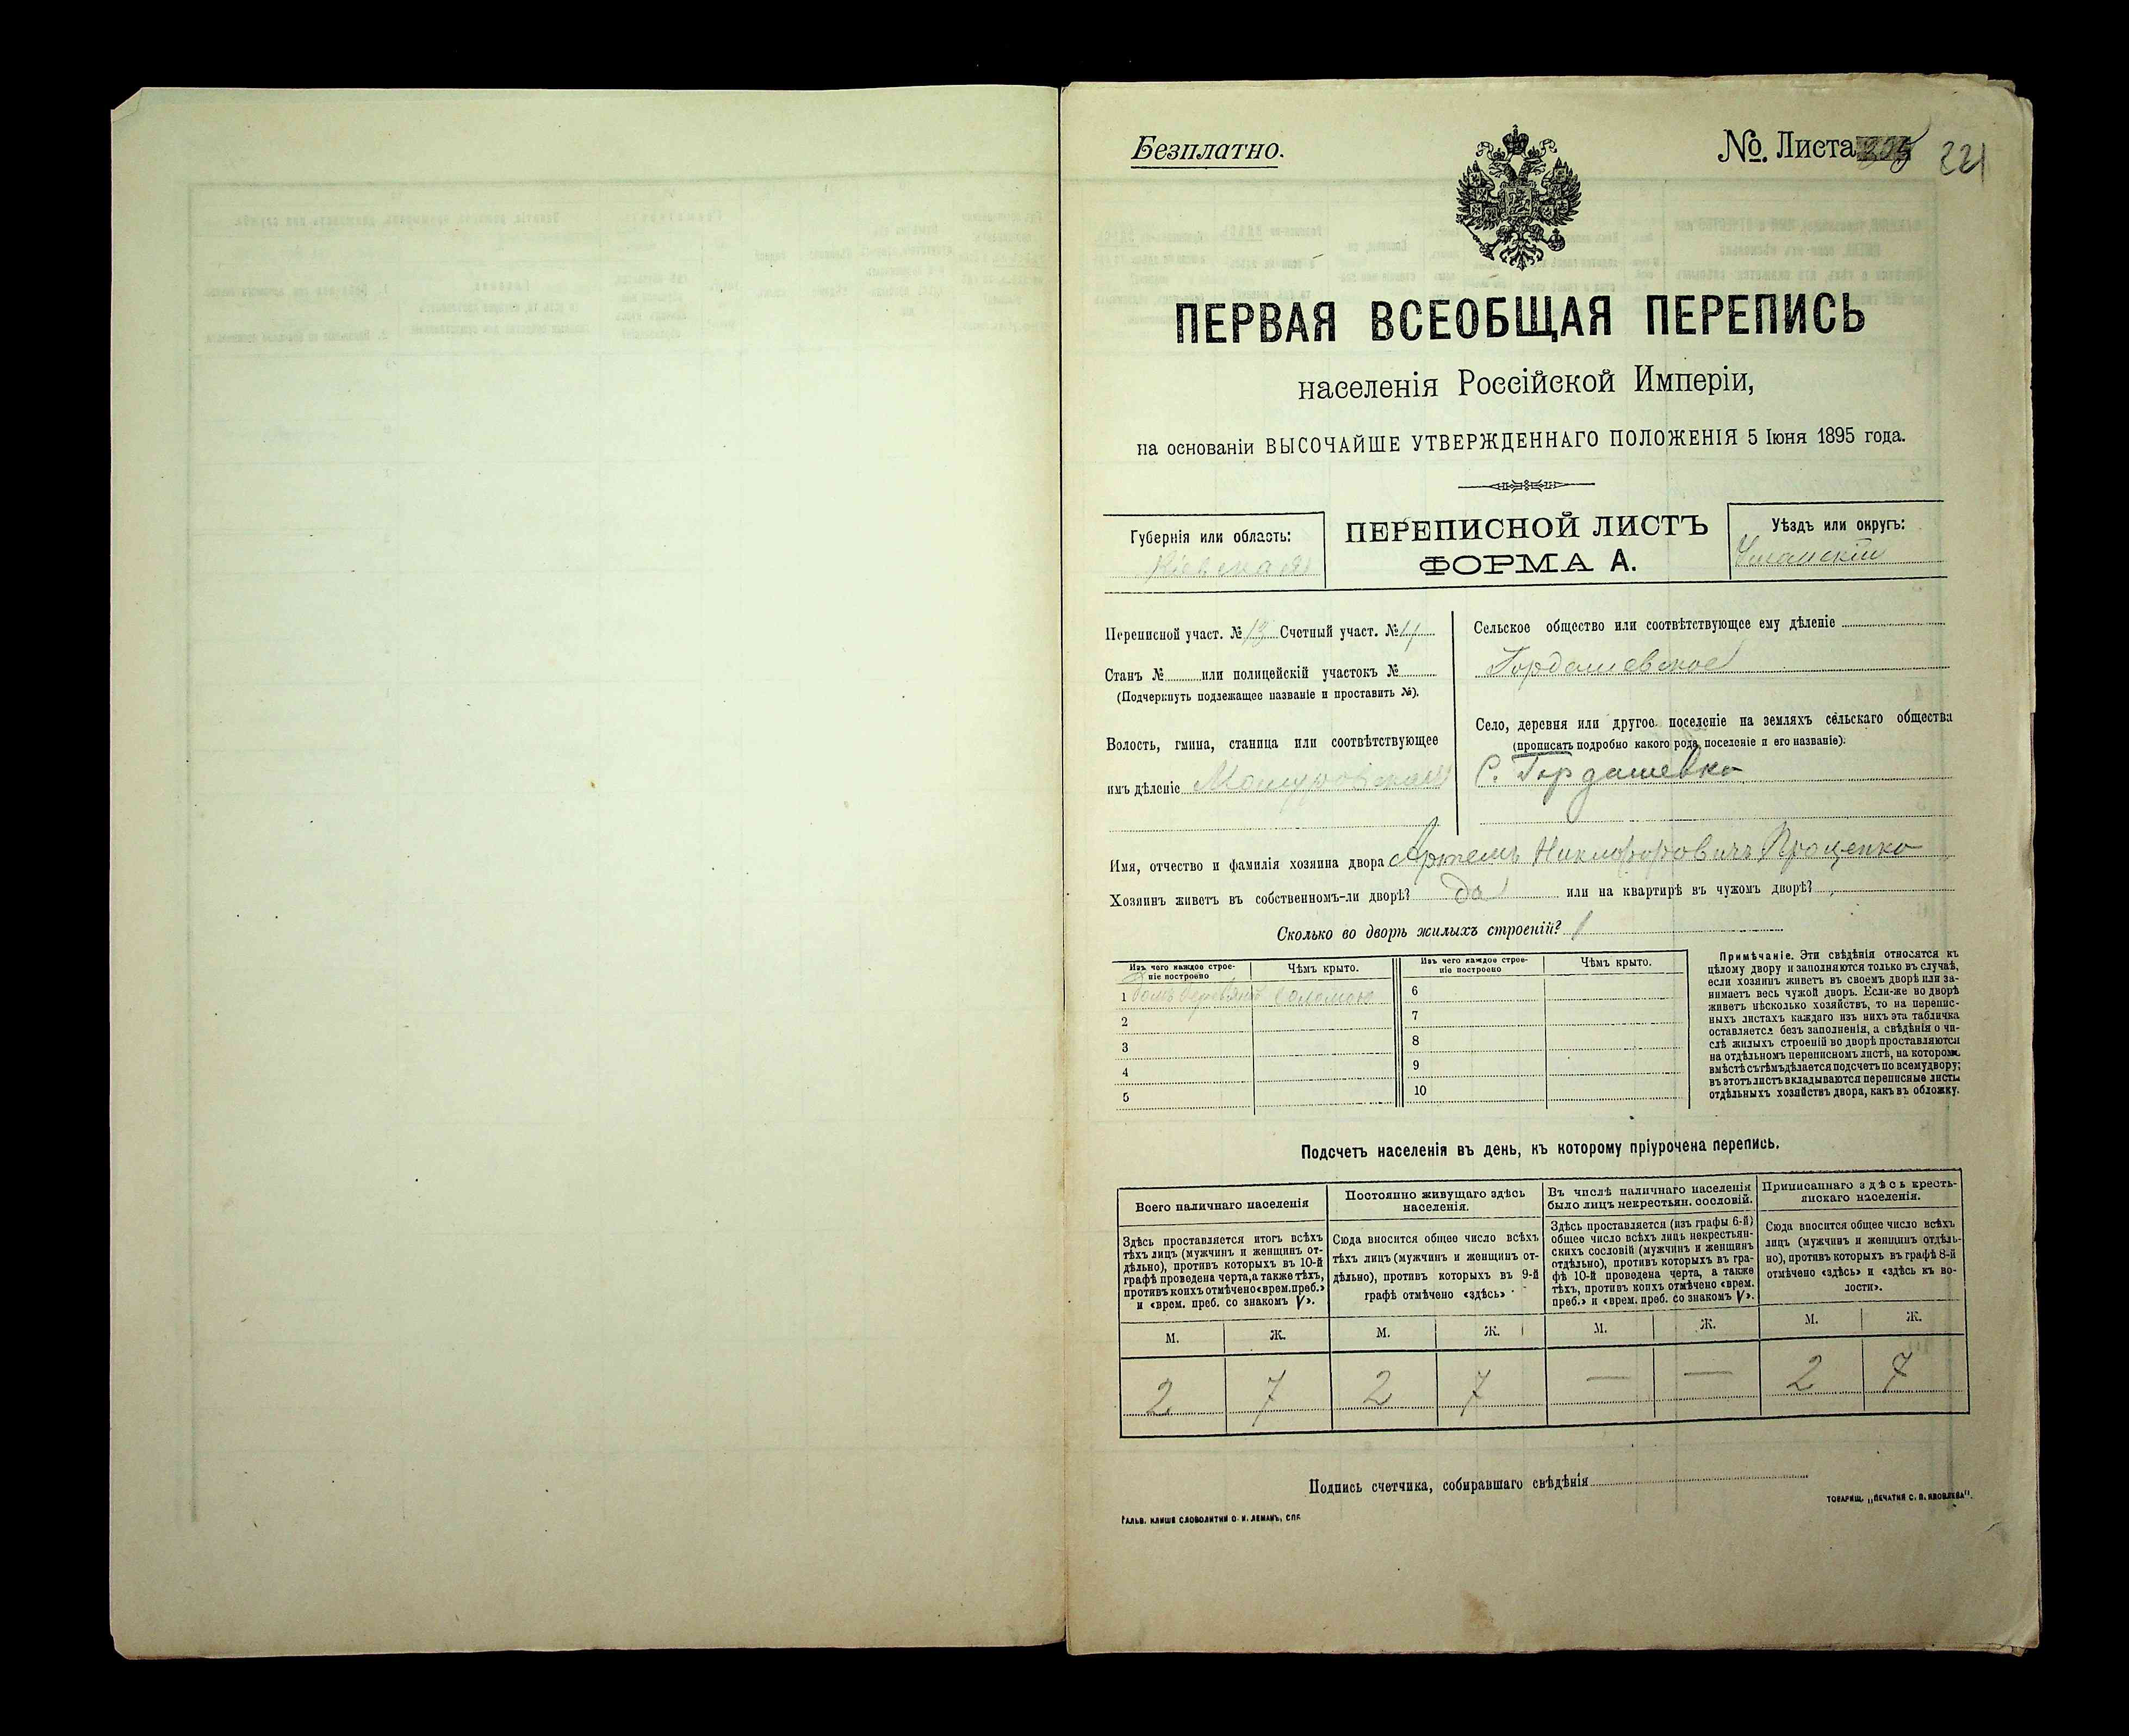 Безплатно.
№. Листа 221
ПЕРВАЯ ВСЕОБЩАЯ ПЕРЕПИСЬ
населенія Россійской Имперіи,
на основаніи ВЫСОЧАЙШЕ УТВЕРЖДЕННАГО ПОЛОЖЕНІЯ 5 Іюня 1895 года.
Губернія или область:
Кіевская
ПЕРЕПИСНОЙ ЛИСТЪ
ФОРМА А.
Уѣздъ или округъ:
Уманскій
Переписной участ. № 13 Счетный участ. №
Станъ № или полицейскій участокъ №
(Подчеркнуть подлежащее названіе и проставить №).
Волость, гмина, станица или соотвѣтствующее
имъ дѣленіе
Сельское общество или соотвѣтствующее ему дѣленіе
Гордашевское
Село, деревня или другое поселеніе на земляхъ сельскаго общества
(прописать подробно какого рода поселеніе и его названіе).
С. Гордашевка
Имя, отчество и фамилія хозяина двора Артемъ Никифоровичъ Проценко
Хозяинъ живетъ въ собственномъ-ли дворѣ? да или на квартирѣ въ чужомъ дворѣ?
Сколько во дворѣ жилыхъ строеній? 1
Изъ чего каждое строеніе построено
Чѣмъ крыто.
Изъ чего каждое строеніе построено
Чѣмъ крыто.
1 Домъ деревян. соломою
2
3
4
5
6
7
8
9
10
Примѣчаніе. Эти свѣдѣнія относятся къ
цѣлому двору и заполняются только въ случаѣ,
если хозяинъ живетъ въ своемъ дворѣ или за-
нимаетъ весь чужой дворъ. Если-же во дворѣ
живетъ нѣсколько хозяйствъ, то на перепис-
ныхъ листахъ каждаго изъ нихъ эта табличка
оставляется безъ заполненія, а свѣдѣнія о чи-
слѣ жилыхъ строеній во дворѣ проставляются
на отдѣльномъ переписномъ листѣ, на которомъ
вмѣстѣ съ тѣмъ дѣлается подсчетъ по всему двору;
въ этотъ листъ вкладываются переписные листы
отдѣльныхъ хозяйствъ двора, какъ въ обложку.
Подсчетъ населенія въ день, къ которому пріурочена перепись.
Всего наличнаго населенія
Здѣсь проставляется итогъ всѣхъ
тѣхъ лицъ (мужчинъ и женщинъ от-
дѣльно), противъ которыхъ въ 10-й
графѣ проведена черта, а также тѣхъ,
противъ коихъ отмѣчено «врем. преб.»
и «врем. преб. со знакомъ V».
Постоянно живущаго здѣсь
населенія.
Сюда вносится общее число всѣхъ
тѣхъ лицъ (мужчинъ и женщинъ от-
дѣльно), противъ которыхъ въ 9-й
графѣ отмѣчено «здѣсь»
Въ числѣ наличнаго населенія
было лицъ некрестьян. сословій.
Здѣсь проставляется (изъ графы 6-й)
общее число всѣхъ лицъ некрестьян-
скихъ сословій (мужчинъ и женщинъ
отдѣльно), противъ которыхъ въ гра-
фѣ 10-й проведена черта, а также
тѣхъ, противъ коихъ отмѣчено «врем.
преб.» и «врем. преб. со знакомъ V».
Приписаннаго здѣсь кресть-
янскаго населенія.
Сюда вносится общее число всѣхъ
лицъ (мужчинъ и женщинъ отдѣль-
но), противъ которыхъ въ графѣ 8-й
отмѣчено «здѣсь» и «здѣсь къ во-
лости».
М. Ж. М. Ж. М. Ж. М. Ж.
2 7 2 7 — — 2 7
Подпись счетчика, собиравшаго свѣдѣнія
ГАЛЬВ. КЛИШЕ СЛОВОЛИТНИ О. И. ЛЕМАНЪ, СПБ
ТОВАРИЩ. „ПЕЧАТНЯ С. П. ЯКОВЛЕВА".